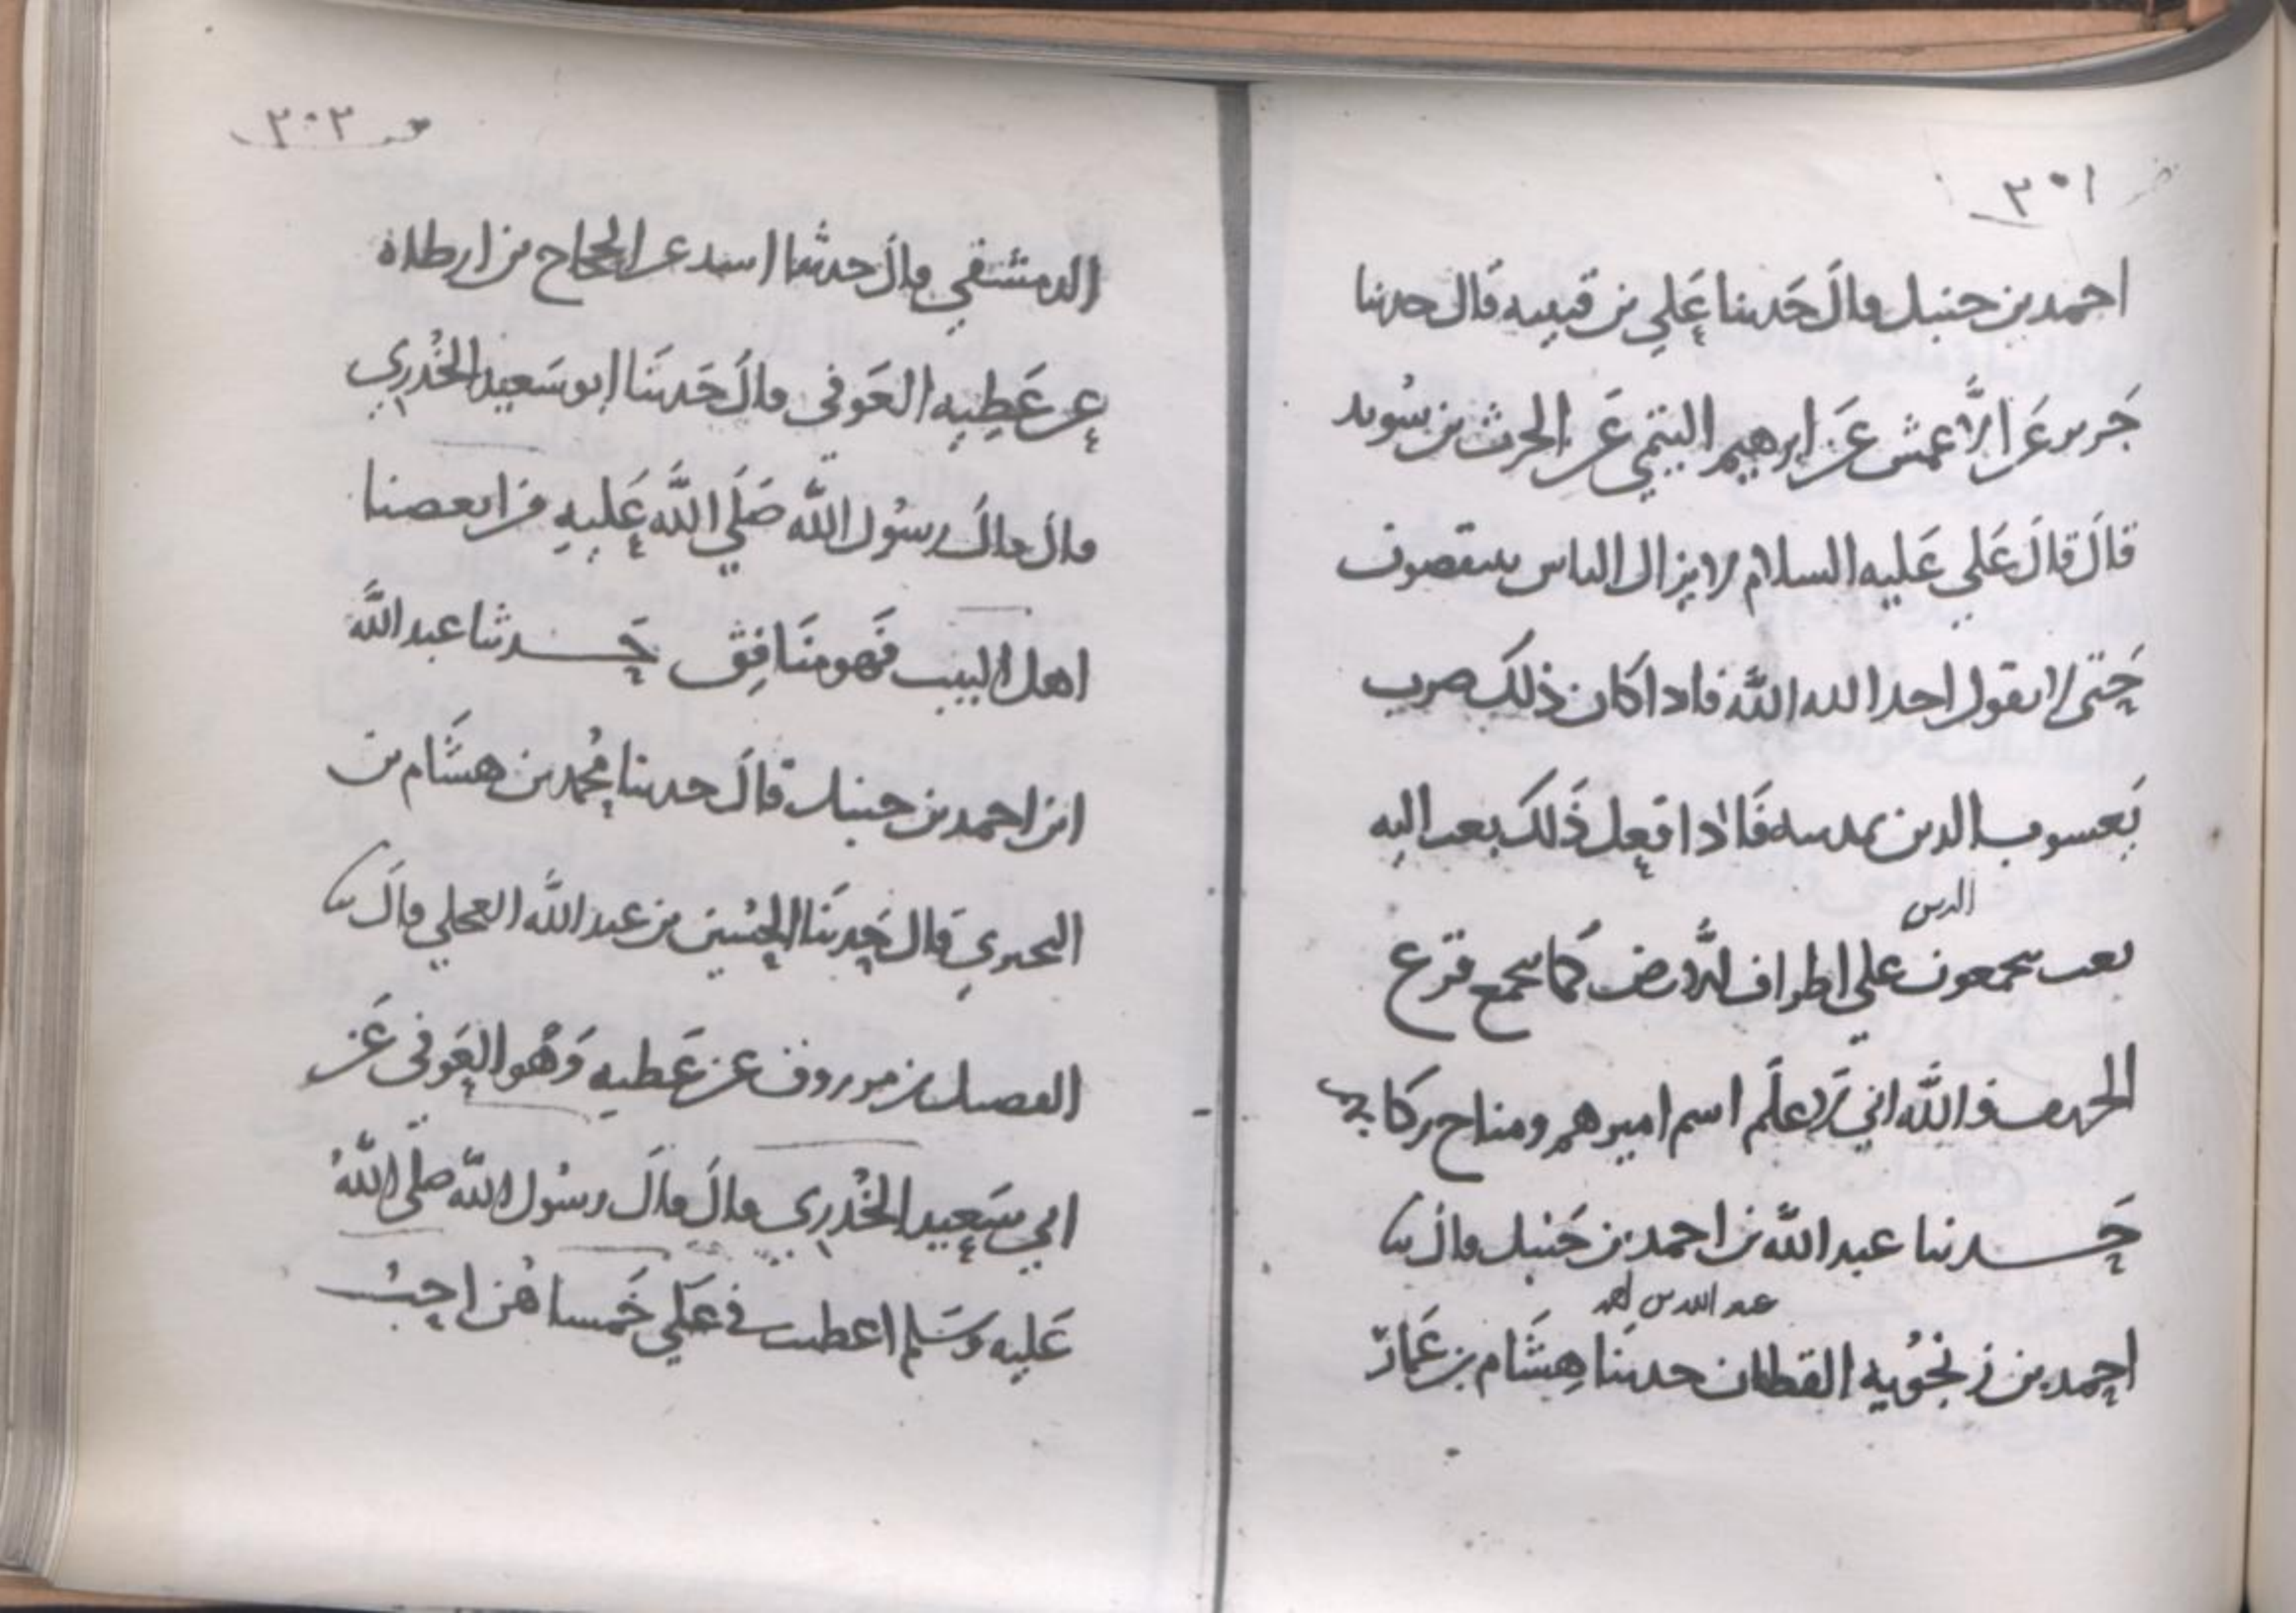 ٣٠١
احمد بن حنبل قال حَدثنا عَلي بن قتيبه قَال حدثنا
جَرير عَن الأَعمش عَن ابرهيم التيمي عَن الحرث بن سُويد
قالَ قالَ عَلي عَليه السلام لا يزال الناس ينقصون
حَتى لا يقول احد الله اللَّه فاذا كان ذلك ضرب
يَعسوب الدين بذنبه فَاذا فعل ذَلك بعث اليه
الدين
بعث يجمعون على اطراف الأَرض كَما يجمع قزع
الخريف واللَّه اني لاَعلَم اسم اميرهم ومناخ ركابهم
حَدثنا عبد اللَّه بن احمد بن حَنبل قالَ نا
عبد الله بن احمد
احمد بن زنجُويه القطان حدثنا هِشَام بن عَمار
٣٠٢
الدمشقي قالَ حدثنا اسد عن الحجاج بن ارطاة
عن عَطِيه العَوفي قالَ حَدثَنا ابو سَعيد الخُدري
قالَ قالَ رسُول اللَّه صَلَي اللَّه عَليهِ من ابغضنا
اهل البيت فَهو منَافِق حَدثنا عبد اللَّه
ابن احمد بن حنبل قالَ حدثنا مُحمد بن هشَام بن
البختري قال حَدثَنا الحُسين بن عبد اللَّه العجلي قالَ نا
الفضيل بن مرزوق عن عَطيه وَهُو العَوفي عَن
ابي سَعِيد الخُدري قالَ قالَ رسُول اللَّه صلّى اللَّهُ
عَليه وَسَلم اعطيت في عَلي خَمسا هُن احبُ